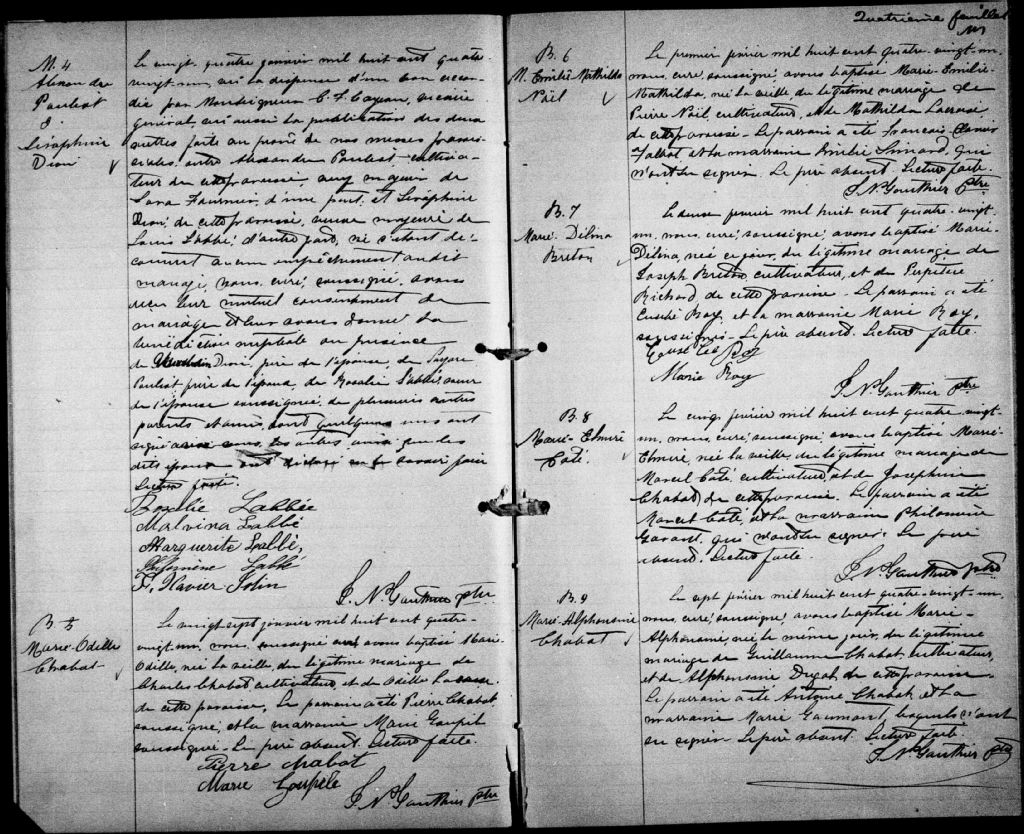 M. 4
Alexandre
Paulest
&
Séraphine
Dion
Le vingt quatre janvier mil huit cent quatre-
vingt-un, vu la dispense d'un ban accor-
dée par Monseigneur C. F. Cazeau, vicaire
général, vu aussi la publication des deux
autres faite au prône de nos messes parois-
siales, entre Alexandre Paulest cultiva-
teur de cette paroisse, veuf majeur de
Sara Fournier, d'une part, et Séraphine
Dion, de cette paroisse, veuve majeure de
Louis Labbé, d'autre part, ne s'étant dé-
couvert aucun empêchement au dit
mariage, nous, curé, soussigné, avons
reçu leur mutuel consentement de
mariage et leur avons donné la
bénédiction nuptiale en présence
de Dion, père de l'épouse, de
Paulest père de l'époux, de Rosalie Labbé, sœur
de l'épouse soussignée, de plusieurs autres
parents et amis, dont quelques uns ont
signé avec nous, les autres ainsi que les
dits époux ont déclaré ne le savoir faire
Lecture faite.
Rosalie Labbée
Malvina Labbé
Marguerite Labbé,
Philomène Labbé
F. Xavier Jolin
J. N. Gauthier ptre
B. 5
Marie-Odille
Chabot
Le vingt sept janvier mil huit cent quatre-
vingt-un, nous, soussigné curé, avons baptisé Marie-
Odille, née la veille, du légitime mariage de
Charles Chabot, cultivateur, et de Odille Lacasse
de cette paroisse. Le parrain a été Pierre Chabot,
soussigné, et la marraine Marie Goupil
soussignée. Le père absent. Lecture faite.
Pierre Chabot
Marie Goupele
J. N. Gauthier ptre
Quatrième feuillet
B. 6
M. Emilie Mathilda
Noël
Le premier février mil huit cent quatre-vingt-un,
nous, curé, soussigné, avons baptisé Marie-Emilie-
Mathilda, née la veille, du légitime mariage de
Pierre Noël, cultivateur, et de Mathilda Lacasse,
de cette paroisse. Le parrain a été François
Talbot et la marraine Emilie Simard, qui
n'ont su signer. Le père absent. Lecture faite.
J. N. Gauthier ptre
B. 7
Marie-Délina
Breton
Le deux février mil huit cent quatre-vingt-
un, nous, curé, soussigné, avons baptisé Marie-
Délina, née ce jour, du légitime mariage de
Joseph Breton cultivateur, et de Perpétue
Richard, de cette paroisse. Le parrain a été
Eusèbe Roy, et la marraine Marie Roy,
soussignés. Le père absent. Lecture faite.
Roy
Marie Roy
J. N. Gauthier ptre
B. 8
Marie-Elmire
Coté.
Le cinq février mil huit cent quatre-vingt-
un, nous, curé, soussigné, avons baptisé Marie-
Elmire, née la veille, du légitime mariage de
Marcel Coté, cultivateur, et de Joséphine
Chabot, de cette paroisse. Le parrain a été
Marcel Coté, et la marraine Philomène
Garant, qui n'ont su signer. Le père
absent. Lecture faite.
J. N. Gauthier ptre
B. 9
Marie-Alphonsine
Chabot
Le sept février mil huit cent quatre-vingt-un,
nous, curé, soussigné, avons baptisé Marie-
Alphonsine, née le même jour, du légitime
mariage de Guillaume Chabot, cultivateur,
et de Alphonsine Dugal, de cette paroisse.
Le parrain a été Antoine Chabot, et la
marraine Marie Gaumont, lesquels n'ont
su signer. Le père absent. Lecture faite
J. N. Gauthier ptre